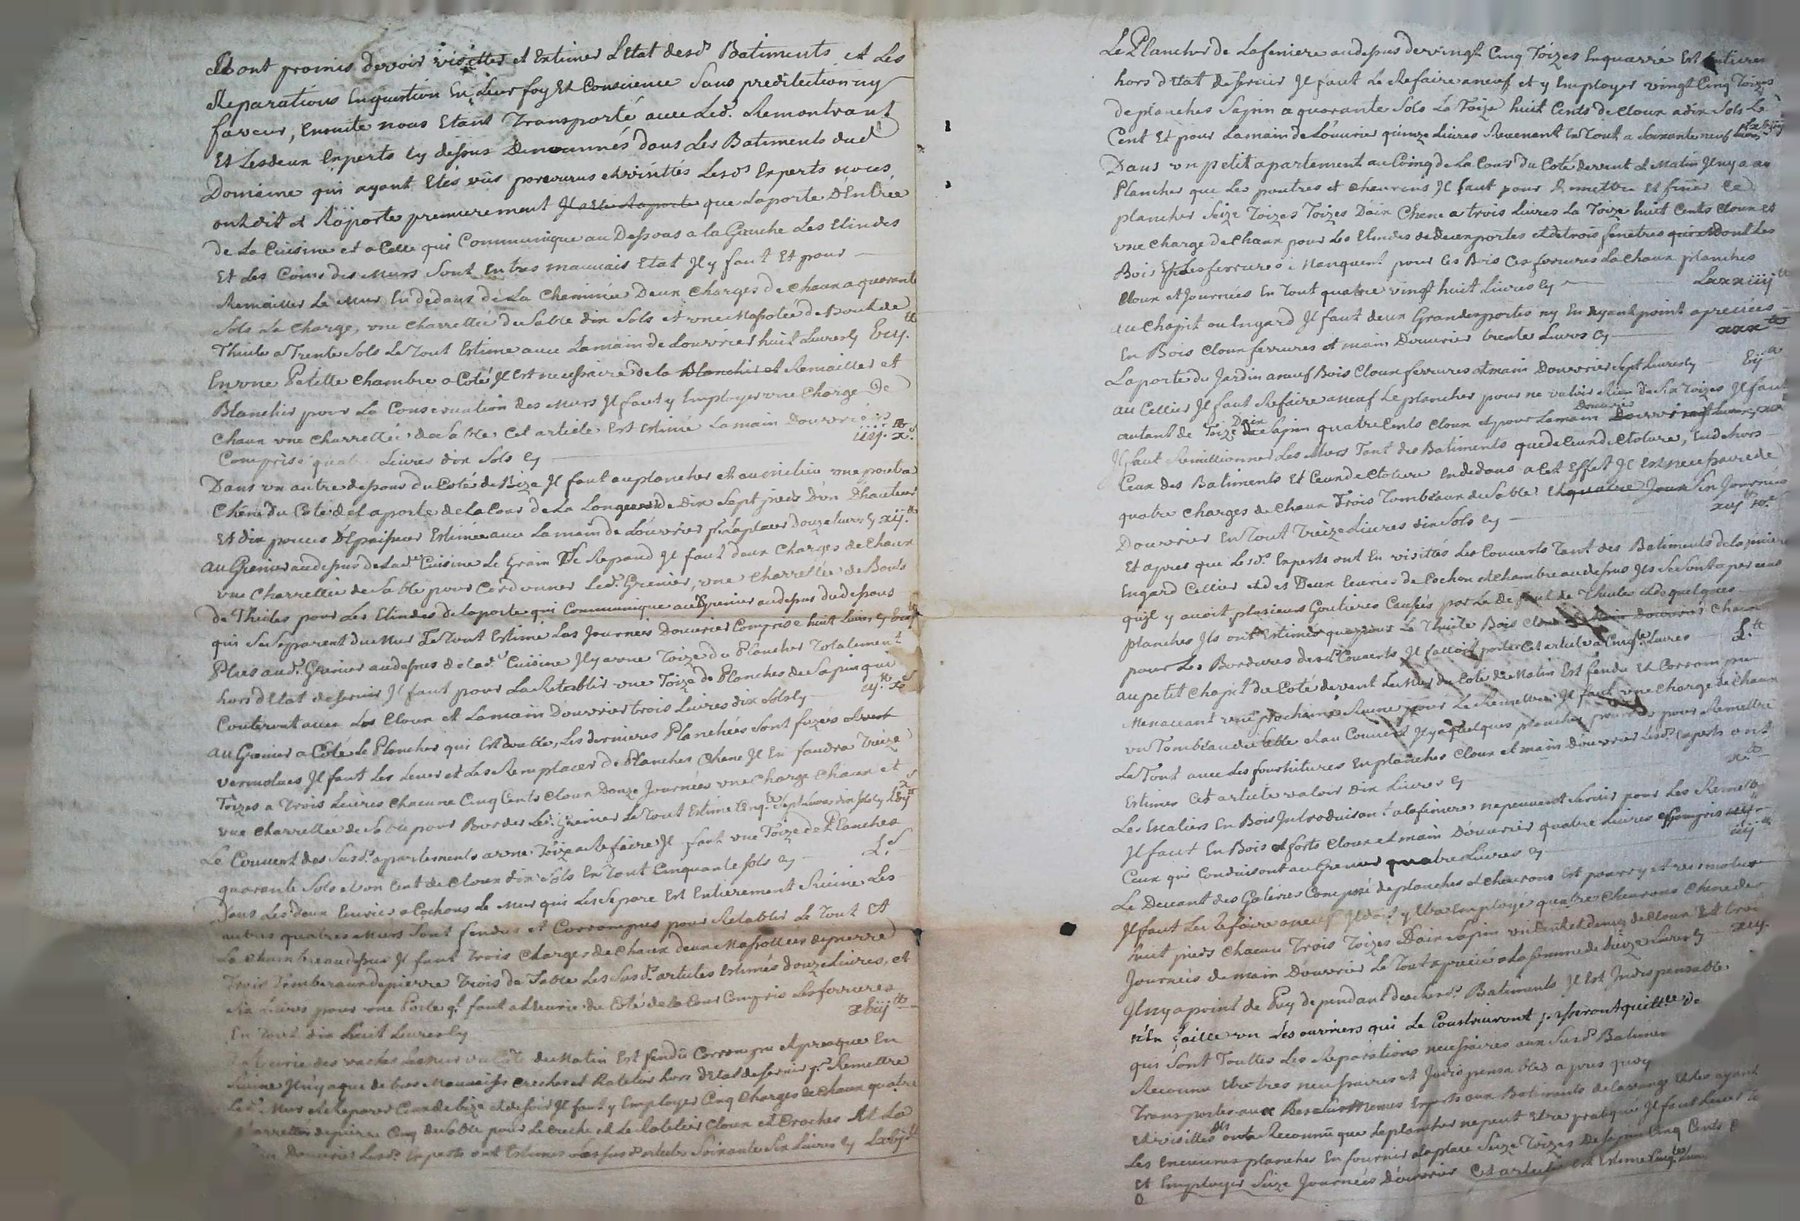 et ont promis devoir visitter et Estimer L'Etat desd. Batiments et Les
Reparations En question En Leur foy Et Conscience Sans predilection ny
faveur, Ensuite nous Etant Transporté avec Led. Remontrant
Et Lesdeux Experts cy dessus Denommés dans Les Batiments dud
Domeine qui ayant Etés vûs parcourus et visittés Lesd. Experts nous
ont dit et Raporté premierement que La porte D'Entrée
de La Cuisine et a Celle qui Communique au Dessous a la Gauche Les Elindes
Et Les Coins des Murs Sont En tres mauvais Etat Il y faut Et pour
Remailler Le Mur En dedans de La Cheminée Deux Charges de Chaux a quarente
Sols La Charge, une Charrettée de Sable dix Sols et une de Bouts de
Thuile a Trente Sols Le Tout Estimé avec La main de L'ouvrier huit Livres Cy
En une Petitte Chambre a Coté Il Est necessaire de la Blanchir et Remailler et
Blanchir pour La Conservation des Murs Il faut y Employer une Charge De
Chaux une Charrettée de Sable Cet article Est Estimé La main D'ouvrier
Comprise quatre Livres dix Sols Cy iiij.tt x.s
Dans un autre dessous du Coté de Bize Il faut au plancher et au milieu une
Chêne du Coté de La porte de La Cour de La Longueur de Dix Sept pieds D'un D'hauteur
Et dix pouces D'Epaisseur Estimé avec La main de L'ouvrier pr. La placer douze Livres Cy xij.tt
Au Grenier au dessus de Lad. Cuisine Le Grain Se Repand Il faut deux Charges de Chaux
une Charrettée de Sable pour Cordonner Led. Grenier, une Charrettée de Bouts
de Thuiles pour Les Elindes de La porte qui Communique au Grenier au dessus du dessous
qui Se Separent du Mur Le Tout Estimé Les Journées D'ouvrier Comprise huit Livres Cy
Plus aud. Grenier au dessus de Lad. Cuisine Il y a une Toize de Plancher Totalement
hors d'Etat de Servir Il faut pour La Retablir une Toize de Planches de Sapin qui
Couteront avec Les Cloux et La main D'ouvrier trois Livres dix Sols Cy iij.tt x.s
Au Grenier a Coté Le Plancher qui Est double, Les dernieres Planches Sont
vermolues Il faut Les Lever et Les Remplacer de Planches Chene Il En faudra Treize
Toizes a Trois Livres Chacune Cinq Cents Cloux Douze Journées une Charge Chaux et
une Charrettée de Sable pour Border Led. Grenier Le Tout Estimé Cinq.te Sept Livres dix Sols Cy
Le Couvert des Susd. apartements a une Toize a Refaire Il faut une Toize de Planches
quarante Sols et un Cent de Cloux dix Sols En Tout Cinquante Sols Cy L.s
Dans Les deux Ecuries a Cochons Le Mur qui Les Separe Est Entierement Ruiné Les
autres quatres Murs Sont fendus et Corrompus pour Retablir Le Tout Et
La Chambre au dessus Il faut Trois Charges de Chaux deux de pierre
Trois Tomberaux de pierre Trois de Sable Les Susd. articles Estimés douze Livres, et
Six Livres pour une Porte qu'il faut a L'Ecurie du Coté de La Cour Compris Les ferrures
En Tout dix huit Livres Cy xviij.tt
L'Ecurie des vaches Le Mur du Coté du Matin Est fendû Corrompu et presque En
Ruine Il n'y a que de tres Mauvaises Creches et Rateliers hors d'Etat de Servir pr. Remettre
Led. Mur et Reparer Ceux de bize et de Soir Il faut y Employer Cinq Charges de Chaux quatre
Charrettées de pierre Cinq de Sable pour La Creche et Le Ratelier Cloux et Et La
main D'ouvrier Lesd. Experts ont Estimés Les Susd. articles Soixante Six Livres Cy
Le Plancher de La feniere au dessus de vingt Cinq Toizes En quarré Est Entierement
hors d'Etat de Servir Il faut Le Refaire a neuf et y Employer vingt Cinq Toizes
de planches Sapin a quarante Sols La Toize huit Cents de Cloux a dix Sols Le
Cent Et pour La main de L'ouvrier quinze Livres Revenant En Tout a Soixante neuf Livres
Dans un petit apartement au Coing de La Cour du Coté de vent et Matin Il n'y a au
Plancher que Les poutres et Chevrons Il faut pour Remettre Et finir Ce
plancher Seize Toizes D'aix Chene a trois Livres La Toize huit Cents Cloux et
une Charge de Chaux pour Les Elindes de deux portes et de trois fenetres dont Les
Bois Et Les ferrures Manquent pour Les Bois Ces ferrures La Chaux planches
Cloux et Journées En Tout quatre vingt huit Livres Cy Lxxxviij.tt
Au Chapit ou Engard Il faut deux Grandes portes n'y En ayant point apreciées
En Bois Cloux ferrures et main D'ouvrier trente Livres Cy xxx.tt
La porte du Jardin a neuf Bois Cloux ferrures et main D'ouvrier Sept Livres Cy vij.tt
Au Cellier Il faut Refaire a neuf Le plancher pour ne valoir Rien de Six Toizes Il faut
autant de Toizes D'aix Sapin quatre Cents Cloux et pour La main D'ouvrier
Il faut Remillionner Les Murs Tant des Batiments que de Ceux de Cloture, En dehors
Ceux des Batiments Et Ceux de Cloture En dedans a Cet Effet Il Est necessaire de
quatre Charges de Chaux Trois Tombeaux de Sable Six Journées
D'ouvrier En Tout Treize Livres dix Sols Cy
Et apres que Lesd. Experts ont Eu visittés Les Couverts Tant des Batiments de La feniere
Engard Cellier et des Deux Ecuries de Cochon et Chambre au dessus Ils Se Sont apercus
qu'il y avoit plusieurs Goutieres Causées par Le Defaut de Thuiles et de quelques
planches Ils ont Estimés que pour La Thuile Bois Chaux
pour Les Bordures desd. Couverts Il falloit porter Cet article a Cinq.te Livres L.tt
Au petit Chapit du Coté de vent Le Mur du Coté de Matin Est fendu et Corrompu
Menaccant une prochaine Ruine pour Le Remettre Il faut une Charge de Chaux
un Tombeau de Sable et au Couvert Il y a quelques planches pourries pour Remettre
Le Tout avec Les fournitures En planches Cloux et main D'ouvrier Lesd. Experts ont
Estimés Cet article valoir dix Livres Cy x.tt
Les Escaliers En Bois Introduisant a La feniere ne peuvent Servir pour Les Remettre
Il faut En Bois et forts Cloux et main D'ouvrier quatre Livres Compris
Ceux qui Conduisent au Grenier quatre Livres Cy iiij.tt
Le Devant des Galeries Composé de planches et Chevrons Est pourry et vermolue
Il faut Les Refaire a neuf Il doit y Etre Employé quatre Chevrons Chene de
huit pieds Chacun Trois Toizes D'aix Sapin un Cent et demy de Cloux Et trois
Journées de main D'ouvrier Le Tout aprecié a La Somme de Treize Livres Cy
Il n'y a point de Puy dependant desdt. Batiments Il Est Indispensable
D'En faire un Les ouvriers qui Le Construiront
qui Sont Touttes Les Reparations necessaires aux Susd. Batiments
Reconnu Etre tres necessaires et Indispensables apres quoy
Transportés aux Experts aux Batiments de La grange Et Les ayant
Et visittés ont Reconnû que Le plancher ne peut Etre pratiqué Il faut Lever
Les Enciennes planches En fournir a La place Seize Toizes De Sapin Cinq Cents
Et Employer Seize Journées D'ouvrier Cet article Est Estimé